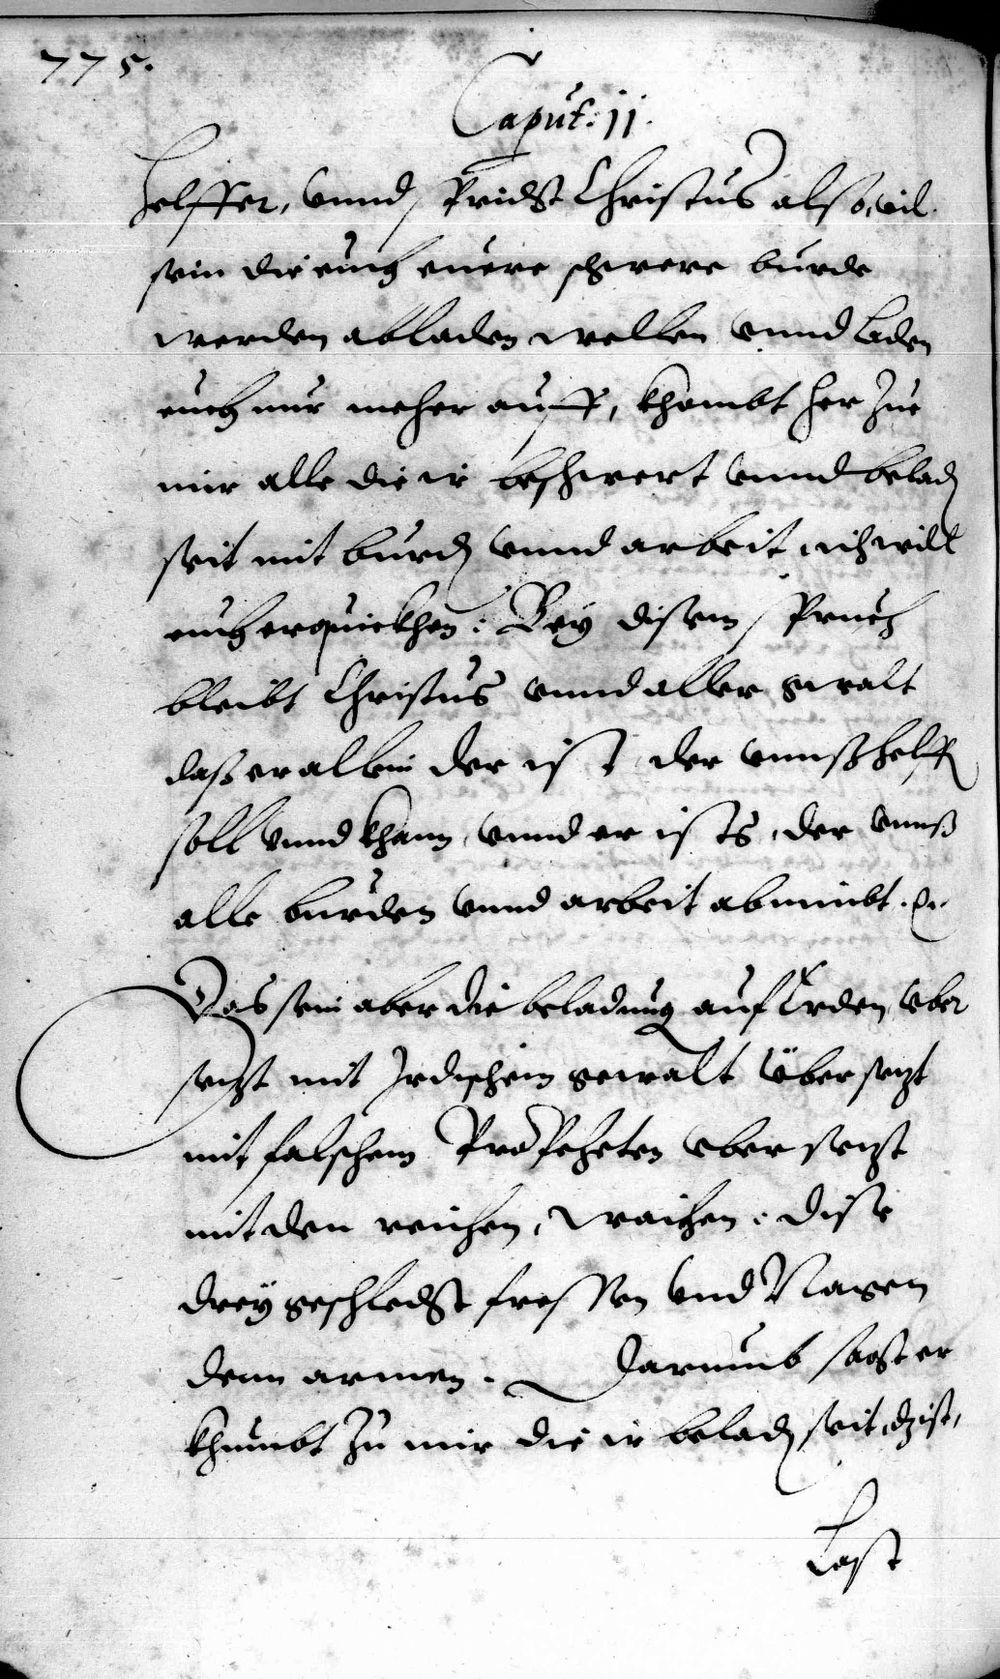 775.
Caput: 11.
helffer, vnnd spricht Christus also, vil
sein die euch euere schwere burde
werden abladen wellen vnnd laden
euch nur meher auff, khombt her zue
mir alle die ir beschwert vnnd beladen
seit mit burden vnnd arbeit, ich will
euch erquickhen: Bey disem spruch
bleibt Christus vnnd aller gwalt
das er allein der ist, der vnnß helffen
soll vnnd khann, vnnd er ists, der vnnß
alle burden vnnd arbeit abnimbt. etc.
Das sein aber die beladung auf Erden, vber
setzt mit Irdischem gewalt vbersetzt
mit falschem Propheten vbersetzt
mit den reichen, : dise
drey geschlecht fressen vnd Nagen
denn armen. Darumb sagt er
khumbt zu mir die ir beladen seit, dz ist,
Last